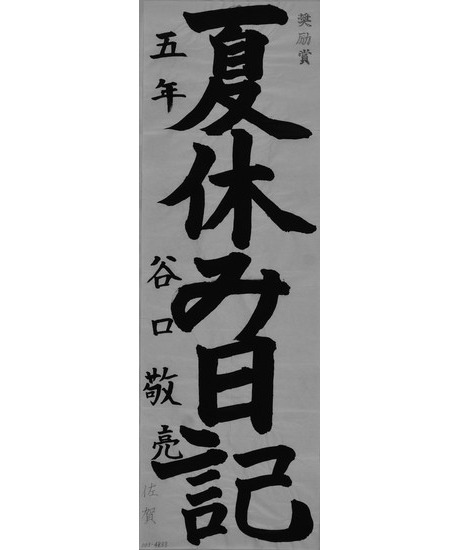 奨励賞
夏休み日記
五年 谷口敬亮
佐賀